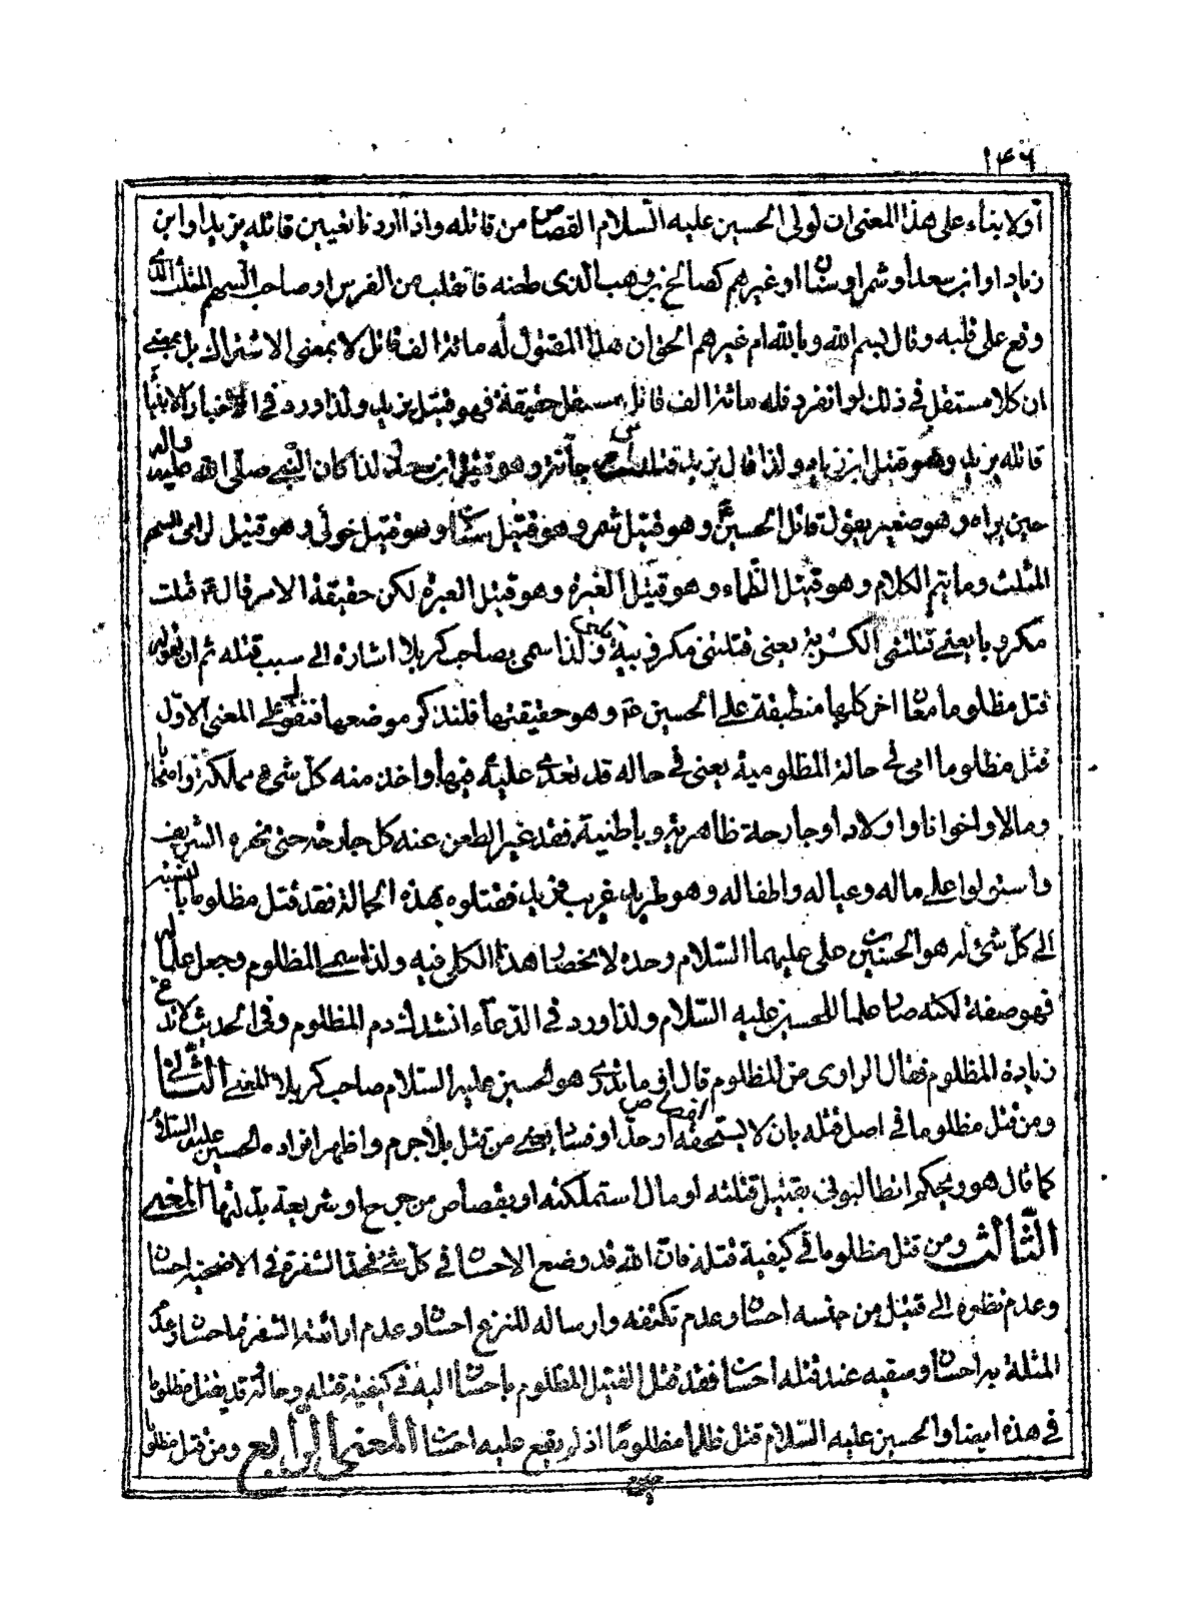 ١٤٦
أولا بناء على هذا المعنى ان لولى الحسين عليه السّلام القصاص من قاتله واذا اردنا تعيين قاتله يزيد او ابن
زياد او ابن سعد او شمر او سنان او غيرهم كصالح بن وهب الذى طعنه فانقلب من الفرس او صاحب السهم المثلث الذى
وقع على قلبه وقال بسم الله وبالله ام غيرهم الحق ان هذا المقتول له مائة الف قاتل لا بمعنى الاشتراك بل بمعنى
ان كلا مستقل فى ذلك لو انفرد فله مائة الف قاتل مستقل حقيقة فهو قتيل يزيد ولذا ورد فى الاخبار
قاتله يزيد وهو قتيل ابن زياد ولذا قال يزيد وهو قتيل ابن سعد لذا كان النبى صلى الله عليه واله
حين يراه وهو صغير يقول قاتل الحسين وهو قتيل شمر وهو قتيل سنان وهو قتيل خولى وهو قتيل لرامى السهم
المثلث وما يتم الكلام وهو قتيل الظماء وهو قتيل الغيرة وهو قتيل العبرة لكن حقيقة الامر قال ع قتلت
مكروبا يعنى قتلتنى الكربة يعنى قتلتنى مكروبية ولذا سمى بصاحب كربلا اشارة الى سبب قتله ثم ان لقوله
قتل مظلوما معان اخر كلها منطبقة على الحسين ع وهو حقيقتها فلنذكر موضعها فنقول المعنى الاوّل
قتل مظلوما اى فى حالة المظلومية يعنى فى حاله قد تعدى عليه فيها واخذ منه كل شىء مملكة واصحابا
ومالا واخوانا واولادا وجارحة ظاهرية وباطنية فقد غير الطعن عنه كل جارحة حتى نحره الشريف
واستولوا على ماله وعياله واطفاله وهو طريد غريب فريد فقتلوه بهذه الحالة فقد قتل مظلوما بالنسبة
الى كلّ شىء له هو الحسين بن على عليهما السّلام وحده لانحصار هذا الكلى فيه ولذا سمى المظلوم وجعل علما له
فهو صفة لكنه صار علما للحسين عليه السّلام ولذا ورد فى الدعاء انشدك دم المظلوم وفى الحديث لا تدع
زيادة المظلوم فقال الراوى من المظلوم قال اوما تدرى هو الحسين عليه السّلام صاحب كربلا المعنى الثّانى
ومن قتل مظلوما فى اصل قتله بان لا يستحقه او حدّا او فسادا يعنى من قتل بلا جرم واظهر افراده الحسين عليه السّلام
كما قال هو ويحكم اتطالبونى بقتيل قتلته او مال استملكته او بقصاص من جرح او شريعة بدلتها المعنى
الثّالث ومن قتل مظلوما فى كيفية قتله فانّ الله قد وضع الاحسان فى كلّ شىء فحدّ الشفرة فى الاضحية احسان
وعدم نظره الى قتيل من جنسه احسان وعدم تكتفه وارساله للنزع احسان وعدم ارائة الشفرة لها احسان وعدم
المثلة به احسان وسقيه عند قتله احسان فقد قتل القتيل المظلوم باحسان اليه فى كيفية قتله وحاله قد يقتل مظلوما
فى هذه ايضا والحسين عليه السّلام قتل ظلما مظلومًا اذ لم يقع عليه احسان المعنى الرّابع ومن قتل مظلوما